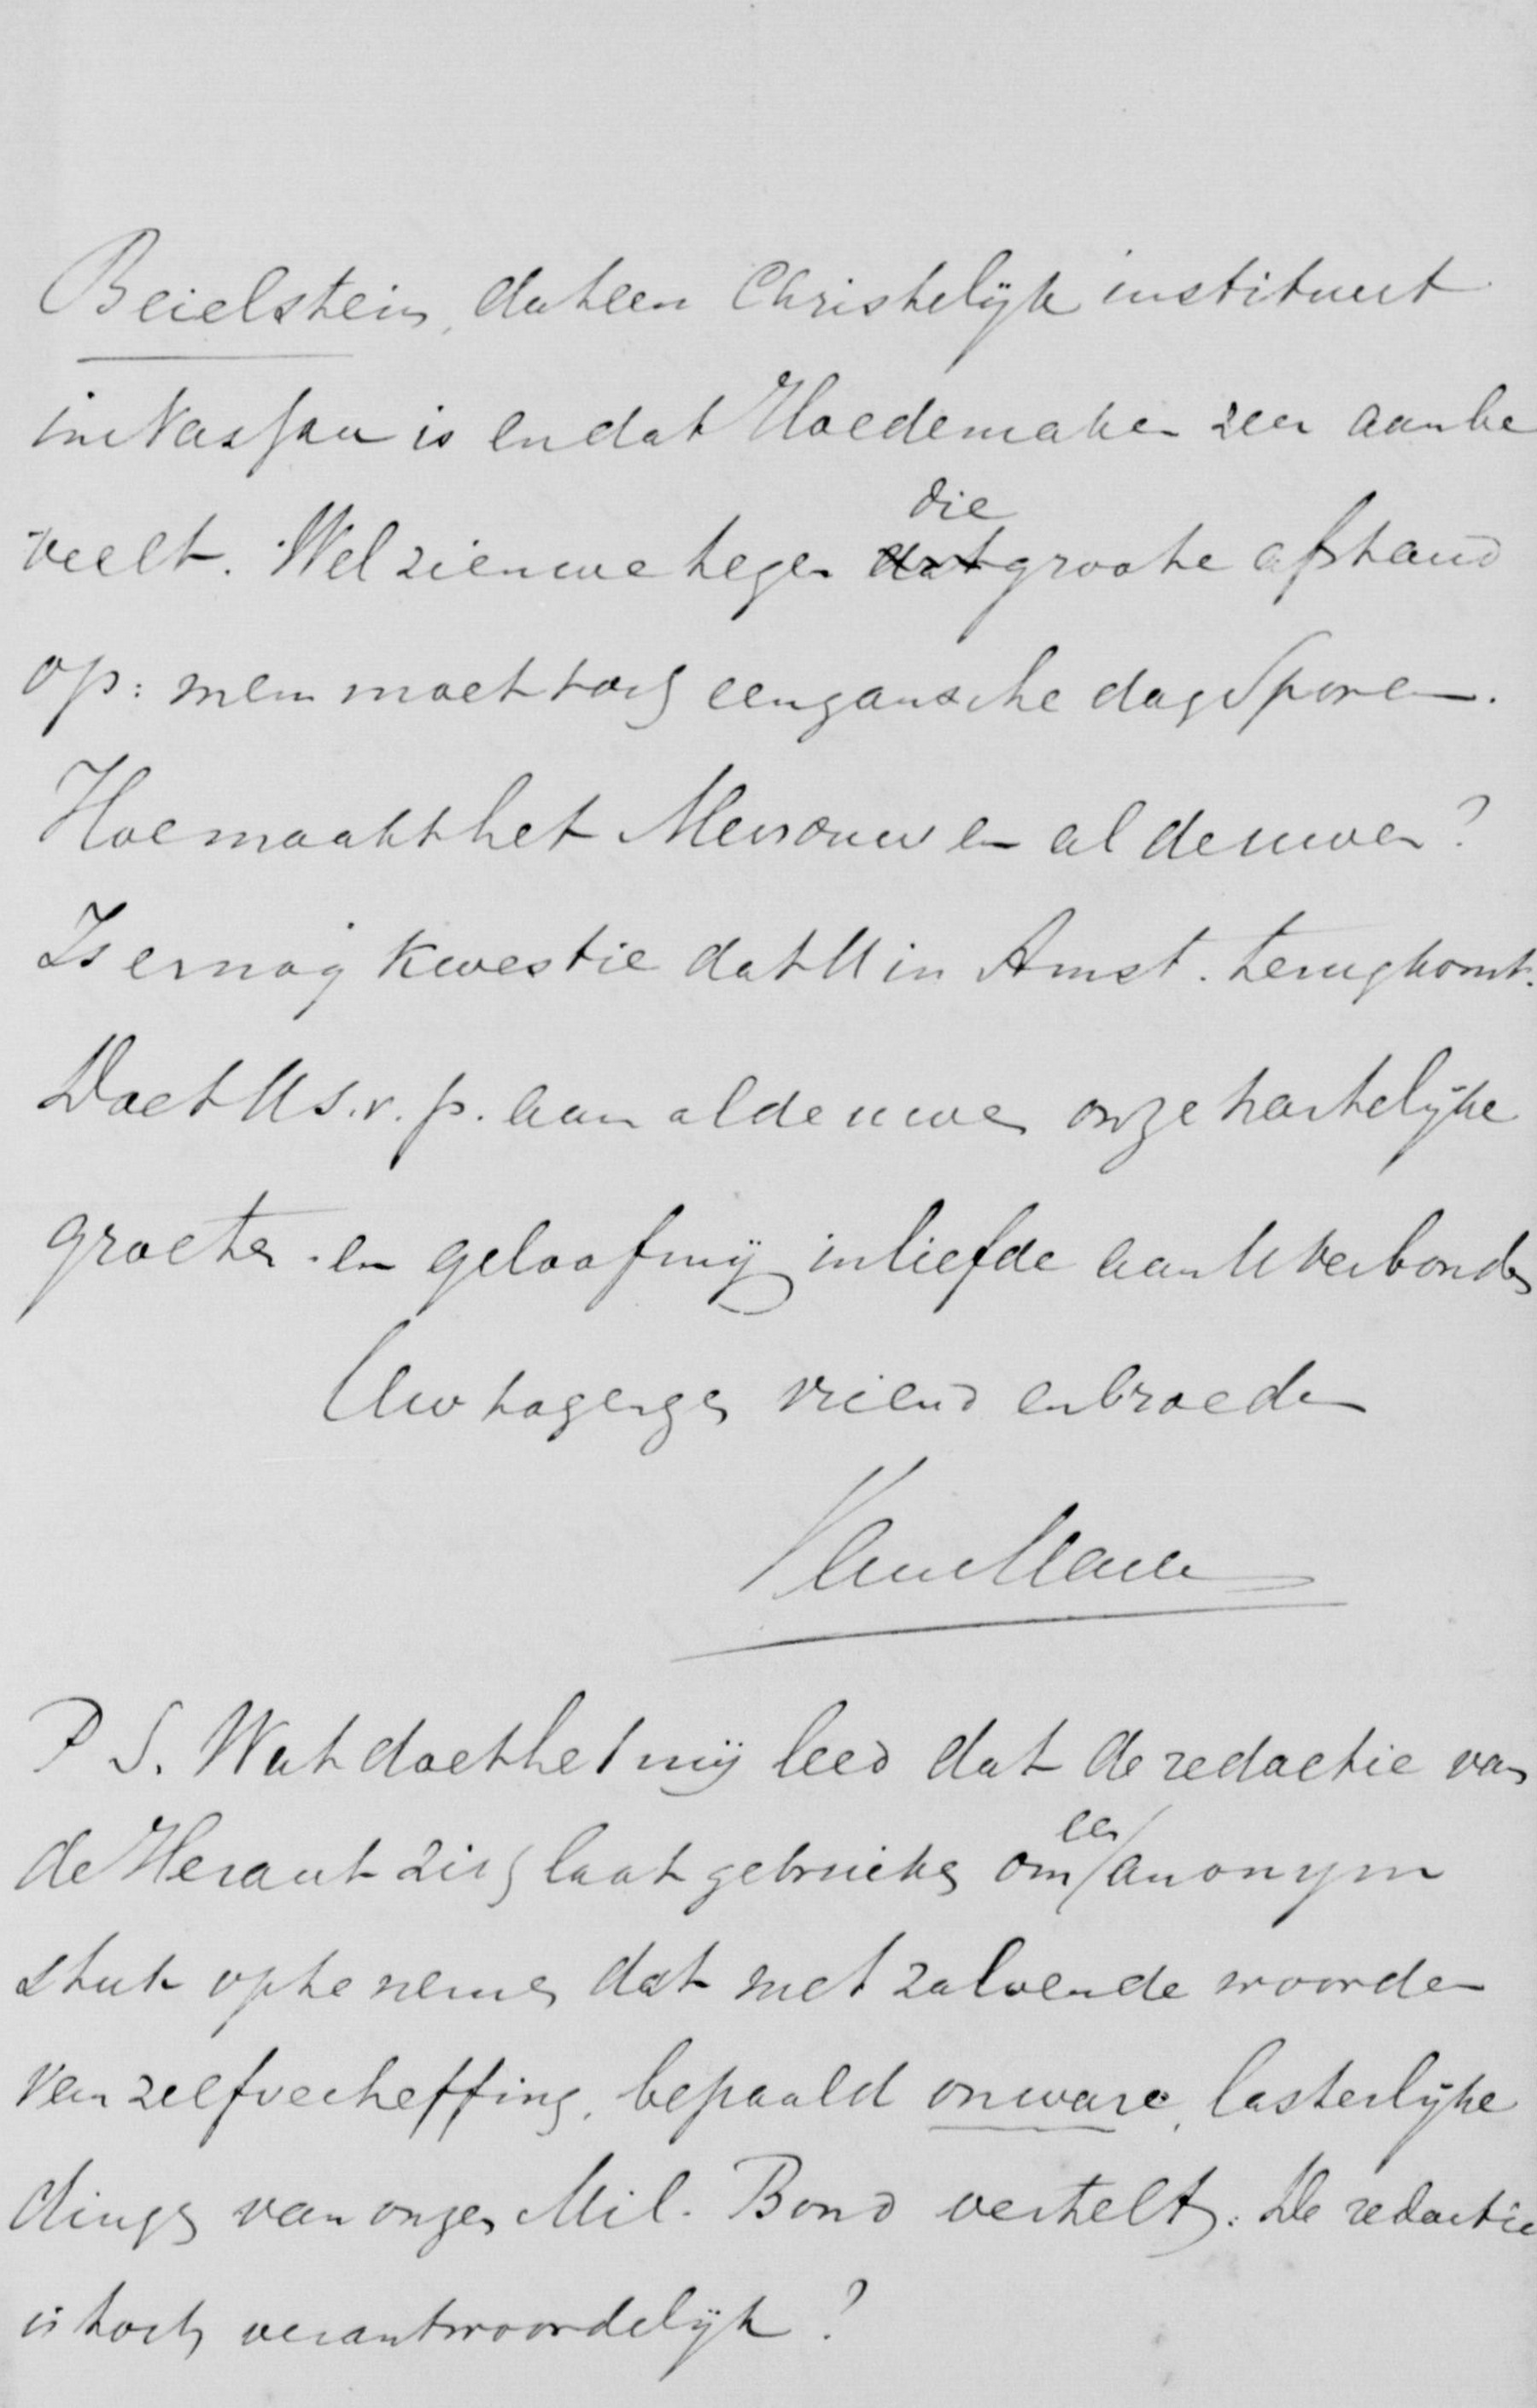 Beielstein, dat een Christelijk instituut
in Nassau is en dat Hoedemaker zeer aanbe
veelt. Wel zien we tegen die groote afstand
op: men moet toch een gansche dag sporen.
Hoe maakt het Mevrouw en al de uwen?
Is er nog kwestie dat U in Amst. terugkomt.
Doet U s.v.p. aan al de uwen onze hartelijke
groeten en geloof mij in liefde aan U verbonden
Uw toegenegen vriend en broeder
P S. Wat doet het mij leed dat de redactie van
de Heraut zich laat gebruiken om een anonym
stuk op te nemen dat met zalvende woorden
van zelfverheffing, bepaald onware, lasterlijke
dingen van onzen Mil. Bond vertelt. De redactie
is toch verantwoordelijk?